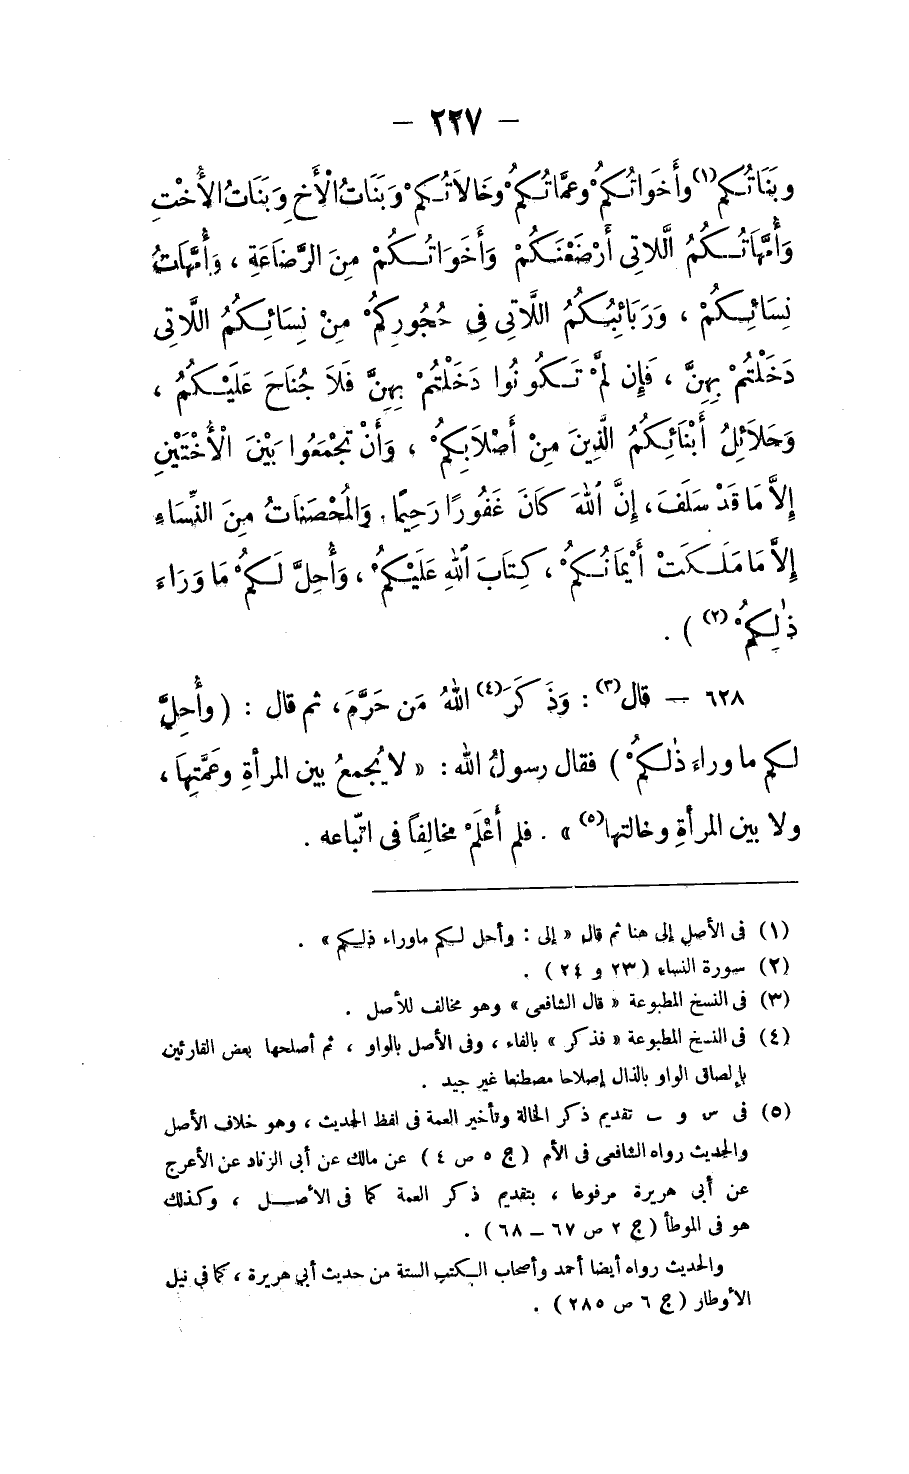 — ٢٢٧ —
وبَنَاتُكم(١) وأَخَوَاتُكمْ وعمَّاتُكمْ وخَالاَتُكمْ وَبَنَاتُ الْأَخِ وَبَنَاتُ الأُخْتِ
وَأُمَّهَاتُكُمُ الَّلاتِى أَرْضَعْنَكُمْ وَأَخَوَاتُكُمْ مِنَ الرَّضَاعَةِ ، وَأُمَّهَاتُ
نِسَائِكُمْ ، وَرَبَائِبُكُمُ اللَّاتِى فِى حُجُورِكمْ مِنْ نِسَائِكُمُ اللَّاتِى
دَخَلْتُمْ بِهِنَّ ، فَإِن لَمْ تَكُونُوا دَخَلْتُمْ بِهِنَّ فَلاَ جُنَاحَ عَلَيْكُمُ ،
وَحَلاَئِلُ أَبْنَائِكُمُ الَّذِينَ مِنْ أَصْلاَبِكمْ ، وَأَنْ تَجْمَعُوا بَيْنَ الْأُخْتَيْنِ
إِلاَّ مَا قَدْ سَلَفَ، إِنَّ ٱللهَ كَانَ غَفُورًا رَحِيمًا. وَالمُحْصَنَاتُ مِنَ النِّسَاءِ
إِلاَّ مَا مَلَكَتْ أَيْمَانُكمْ ، كِتَابَ ٱللهِ عَلَيْكمْ ، وَأُحِلَّ لَكمْ مَا وَرَاءَ
ذٰلِكمْ(٢) ) .
٦٢٨ — قال(٣): وَذَكَرَ(٤) اللهُ مَن حَرَّمَ، ثم قال : ( وأُحِلَّ
لكم ما وراءَ ذٰلكمْ ) فقال رسولُ الله : « لا يُجمعُ بين المرأةِ وعَمَّتِهَا ،
ولا بين المرأةِ وخالتها(٥) » . فلم أَعْلَمْ مخالِفاً فى اتّباعه .
(١) فى الأصل إلى هنا ثم قال « إلى : وأحل لكم ماوراء ذلكم » .
(٢) سورة النساء ( ٢٣ و ٢٤ ) .
(٣) فى النسخ المطبوعة « قال الشافعى » وهو مخالف للأصل .
(٤) فى النسخ المطبوعة « فذكر » بالفاء ، وفى الأصل بالواو ، ثم أصلحها بعض القارئين
بإلصاق الواو بالذال إصلاحا مصطنعا غير جيد .
(٥) فى س و ب تقديم ذكر الخالة وتأخير العمة فى لفظ الحديث ، وهو خلاف الأصل
والحديث رواه الشافعى فى الأم ( ج ٥ ص ٤ ) عن مالك عن أبى الزناد عن الأعرج
عن أبى هريرة مرفوعا ، بتقديم ذكر العمة كما فى الأصل ، وكذلك
هو فى الموطأ ( ج ٢ ص ٦٧ — ٦٨ ) .
والحديث رواه أيضا أحمد وأصحاب الكتب الستة من حديث أبي هريرة ، كما في نيل
الأوطار ( ج ٦ ص ٢٨٥ ) .